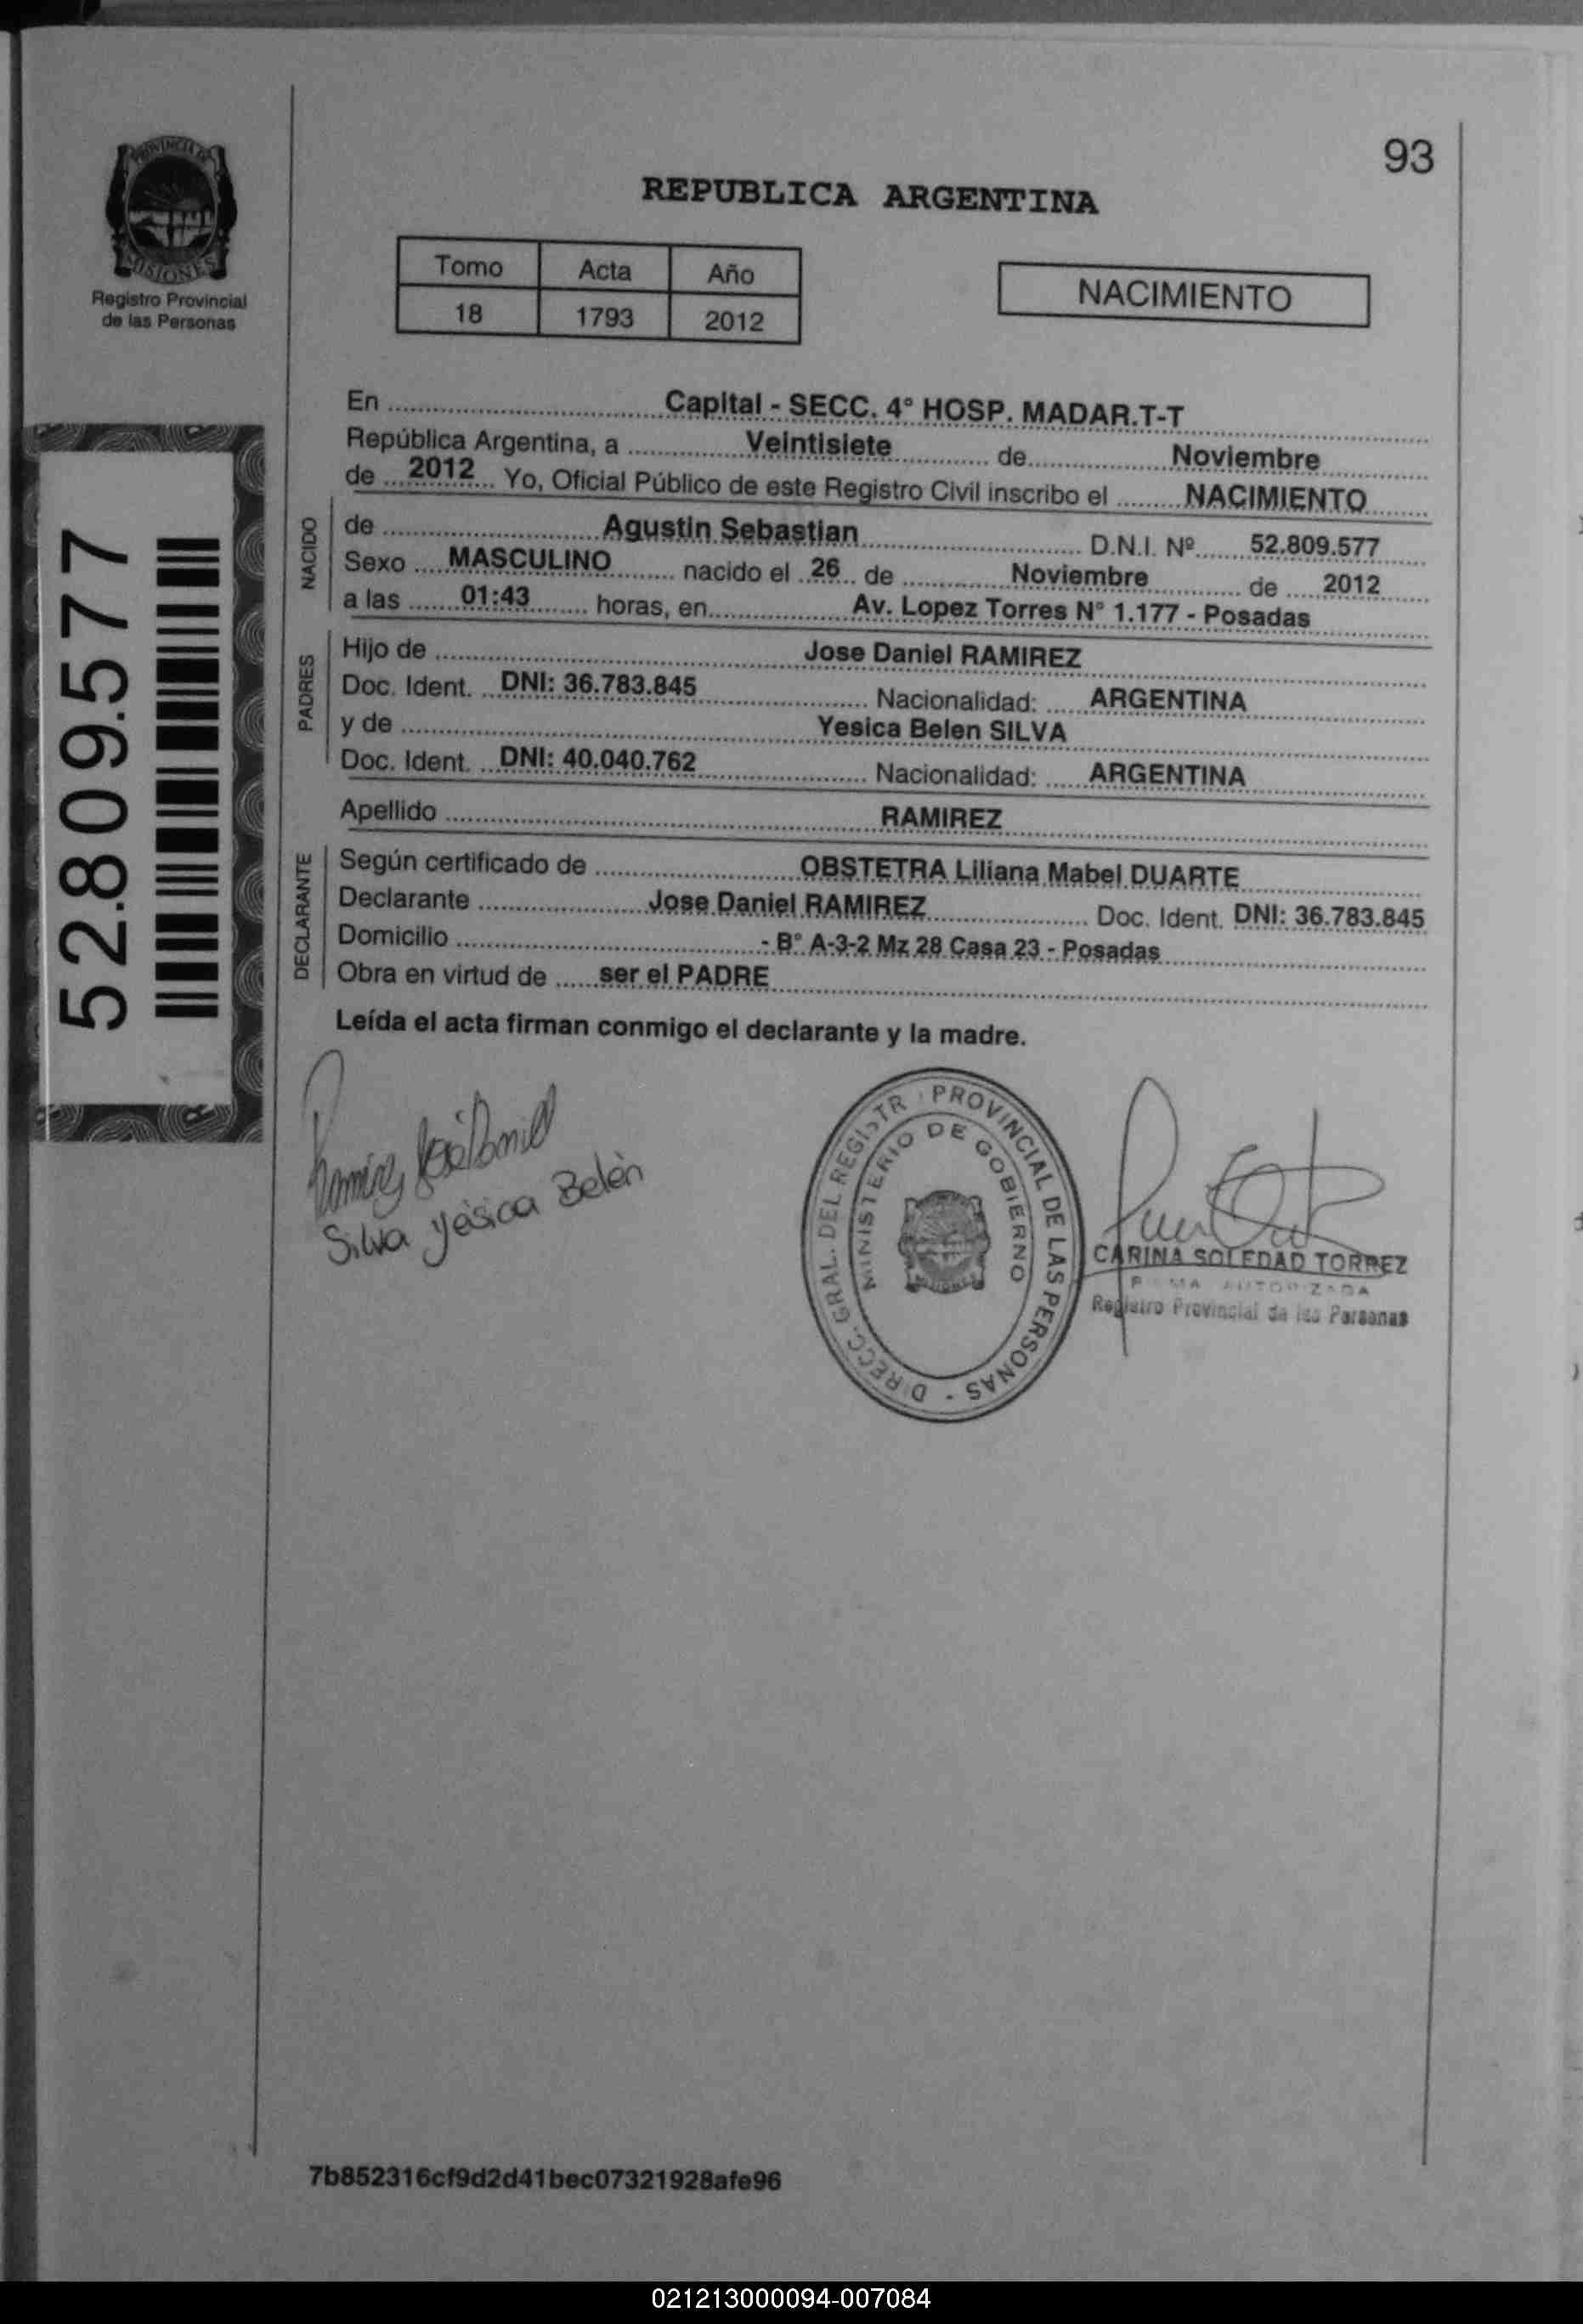 93
PROVINCIA DE
MISIONES
Registro Provincial
de las Personas
REPUBLICA ARGENTINA
Tomo Acta Año
18 1793 2012
NACIMIENTO
52.809.577
En Capital - SECC. 4° HOSP. MADAR.T-T
República Argentina, a Veintisiete de Noviembre
de 2012 Yo, Oficial Público de este Registro Civil inscribo el NACIMIENTO
NACIDO
de Agustin Sebastian D.N.I. Nº 52.809.577
Sexo MASCULINO nacido el 26 de Noviembre de 2012
a las 01:43 horas, en Av. Lopez Torres N° 1.177 - Posadas
PADRES
Hijo de Jose Daniel RAMIREZ
Doc. Ident. DNI: 36.783.845 Nacionalidad: ARGENTINA
y de Yesica Belen SILVA
Doc. Ident. DNI: 40.040.762 Nacionalidad: ARGENTINA
Apellido RAMIREZ
DECLARANTE
Según certificado de OBSTETRA Liliana Mabel DUARTE
Declarante Jose Daniel RAMIREZ Doc. Ident. DNI: 36.783.845
Domicilio - B° A-3-2 Mz 28 Casa 23 - Posadas
Obra en virtud de ser el PADRE
Leída el acta firman conmigo el declarante y la madre.
Ramirez José Daniel
Silva Yésica Belén
DIRECC. GRAL. DEL REGISTR PROVINCIAL DE LAS PERSONAS -
MINISTERIO DE GOBIERNO
CARINA SOLEDAD TORREZ
Registro Provincial de las Personas
7b852316cf9d2d41bec07321928afe96
021213000094-007084